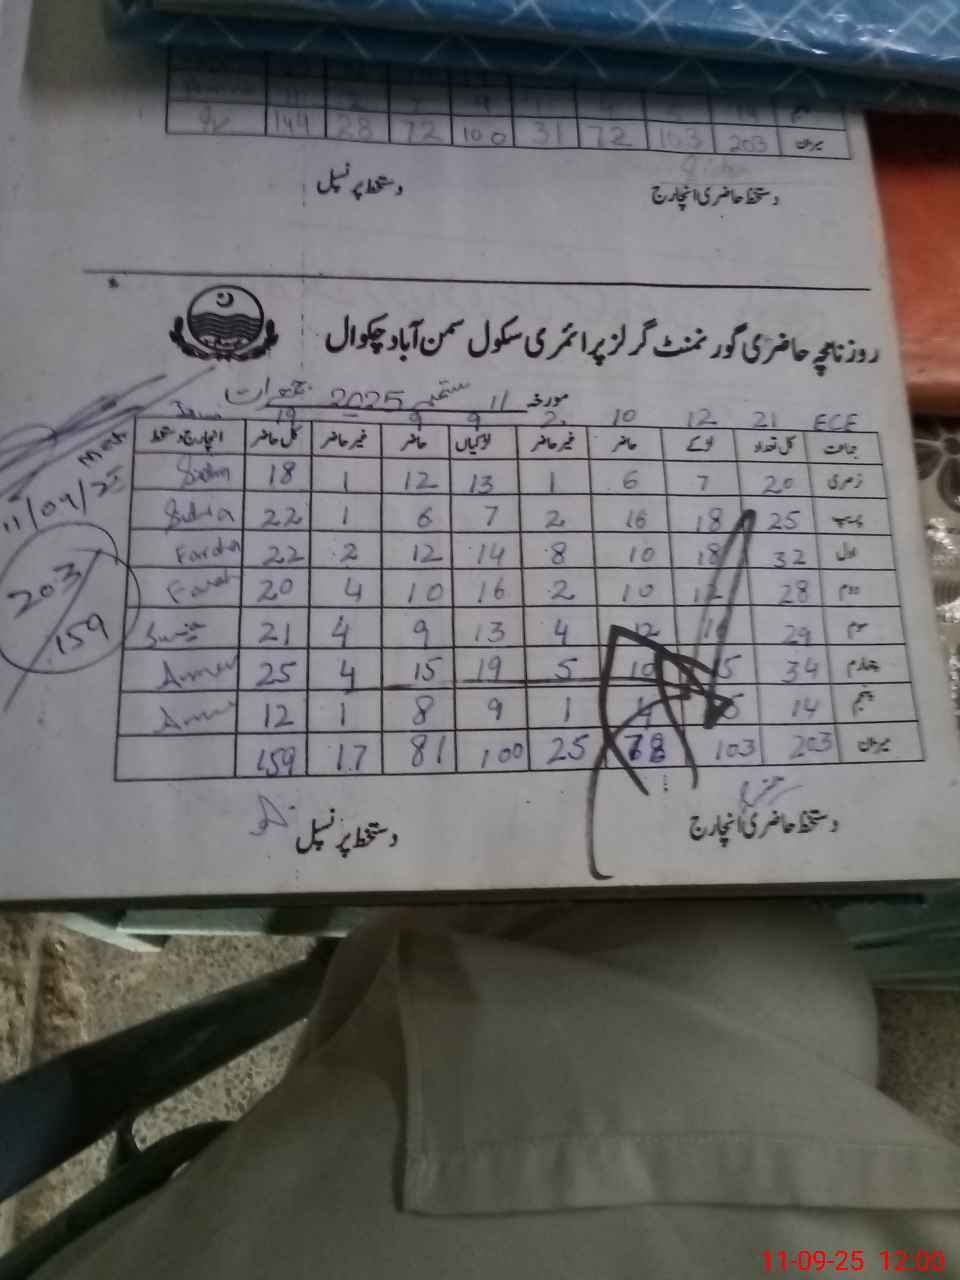 میزان 203 103 72 31 100 72 28 144
دستخط حاضری انچارج دستخط پرنسپل
روزنامچہ حاضری گورنمنٹ گرلز پرائمری سکول سمن آباد چکوال
مورخہ 11 ستمبر 2025 جمعرات
ECE 21 12 10 2 9 9 - 19
جماعت کل تعداد لڑکے حاضر غیر حاضر لڑکیاں حاضر غیر حاضر کل حاضر انچارج دستخط
نرسری 20 7 6 1 13 12 1 18 Sidra
25 18 16 2 7 6 1 22 Sidra
اول 32 18 10 8 14 12 2 22 Farah
دوم 28 12 10 2 16 10 4 20 Farah
سوم 29 16 12 4 13 9 4 21
چہارم 34 15 10 5 19 15 4 25
پنجم 14 5 4 1 9 8 1 12
میزان 203 103 78 25 100 81 17 159
11/09/25
203
159
دستخط حاضری انچارج دستخط پرنسپل
11-09-25 12:00